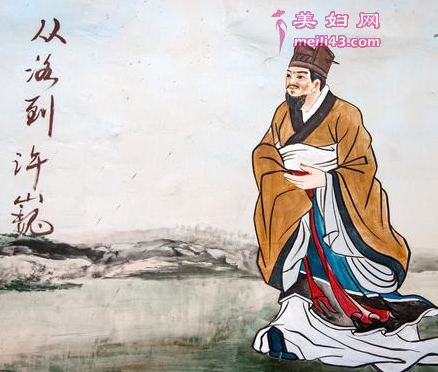 美妇网
meili43.com
从洛到许巍